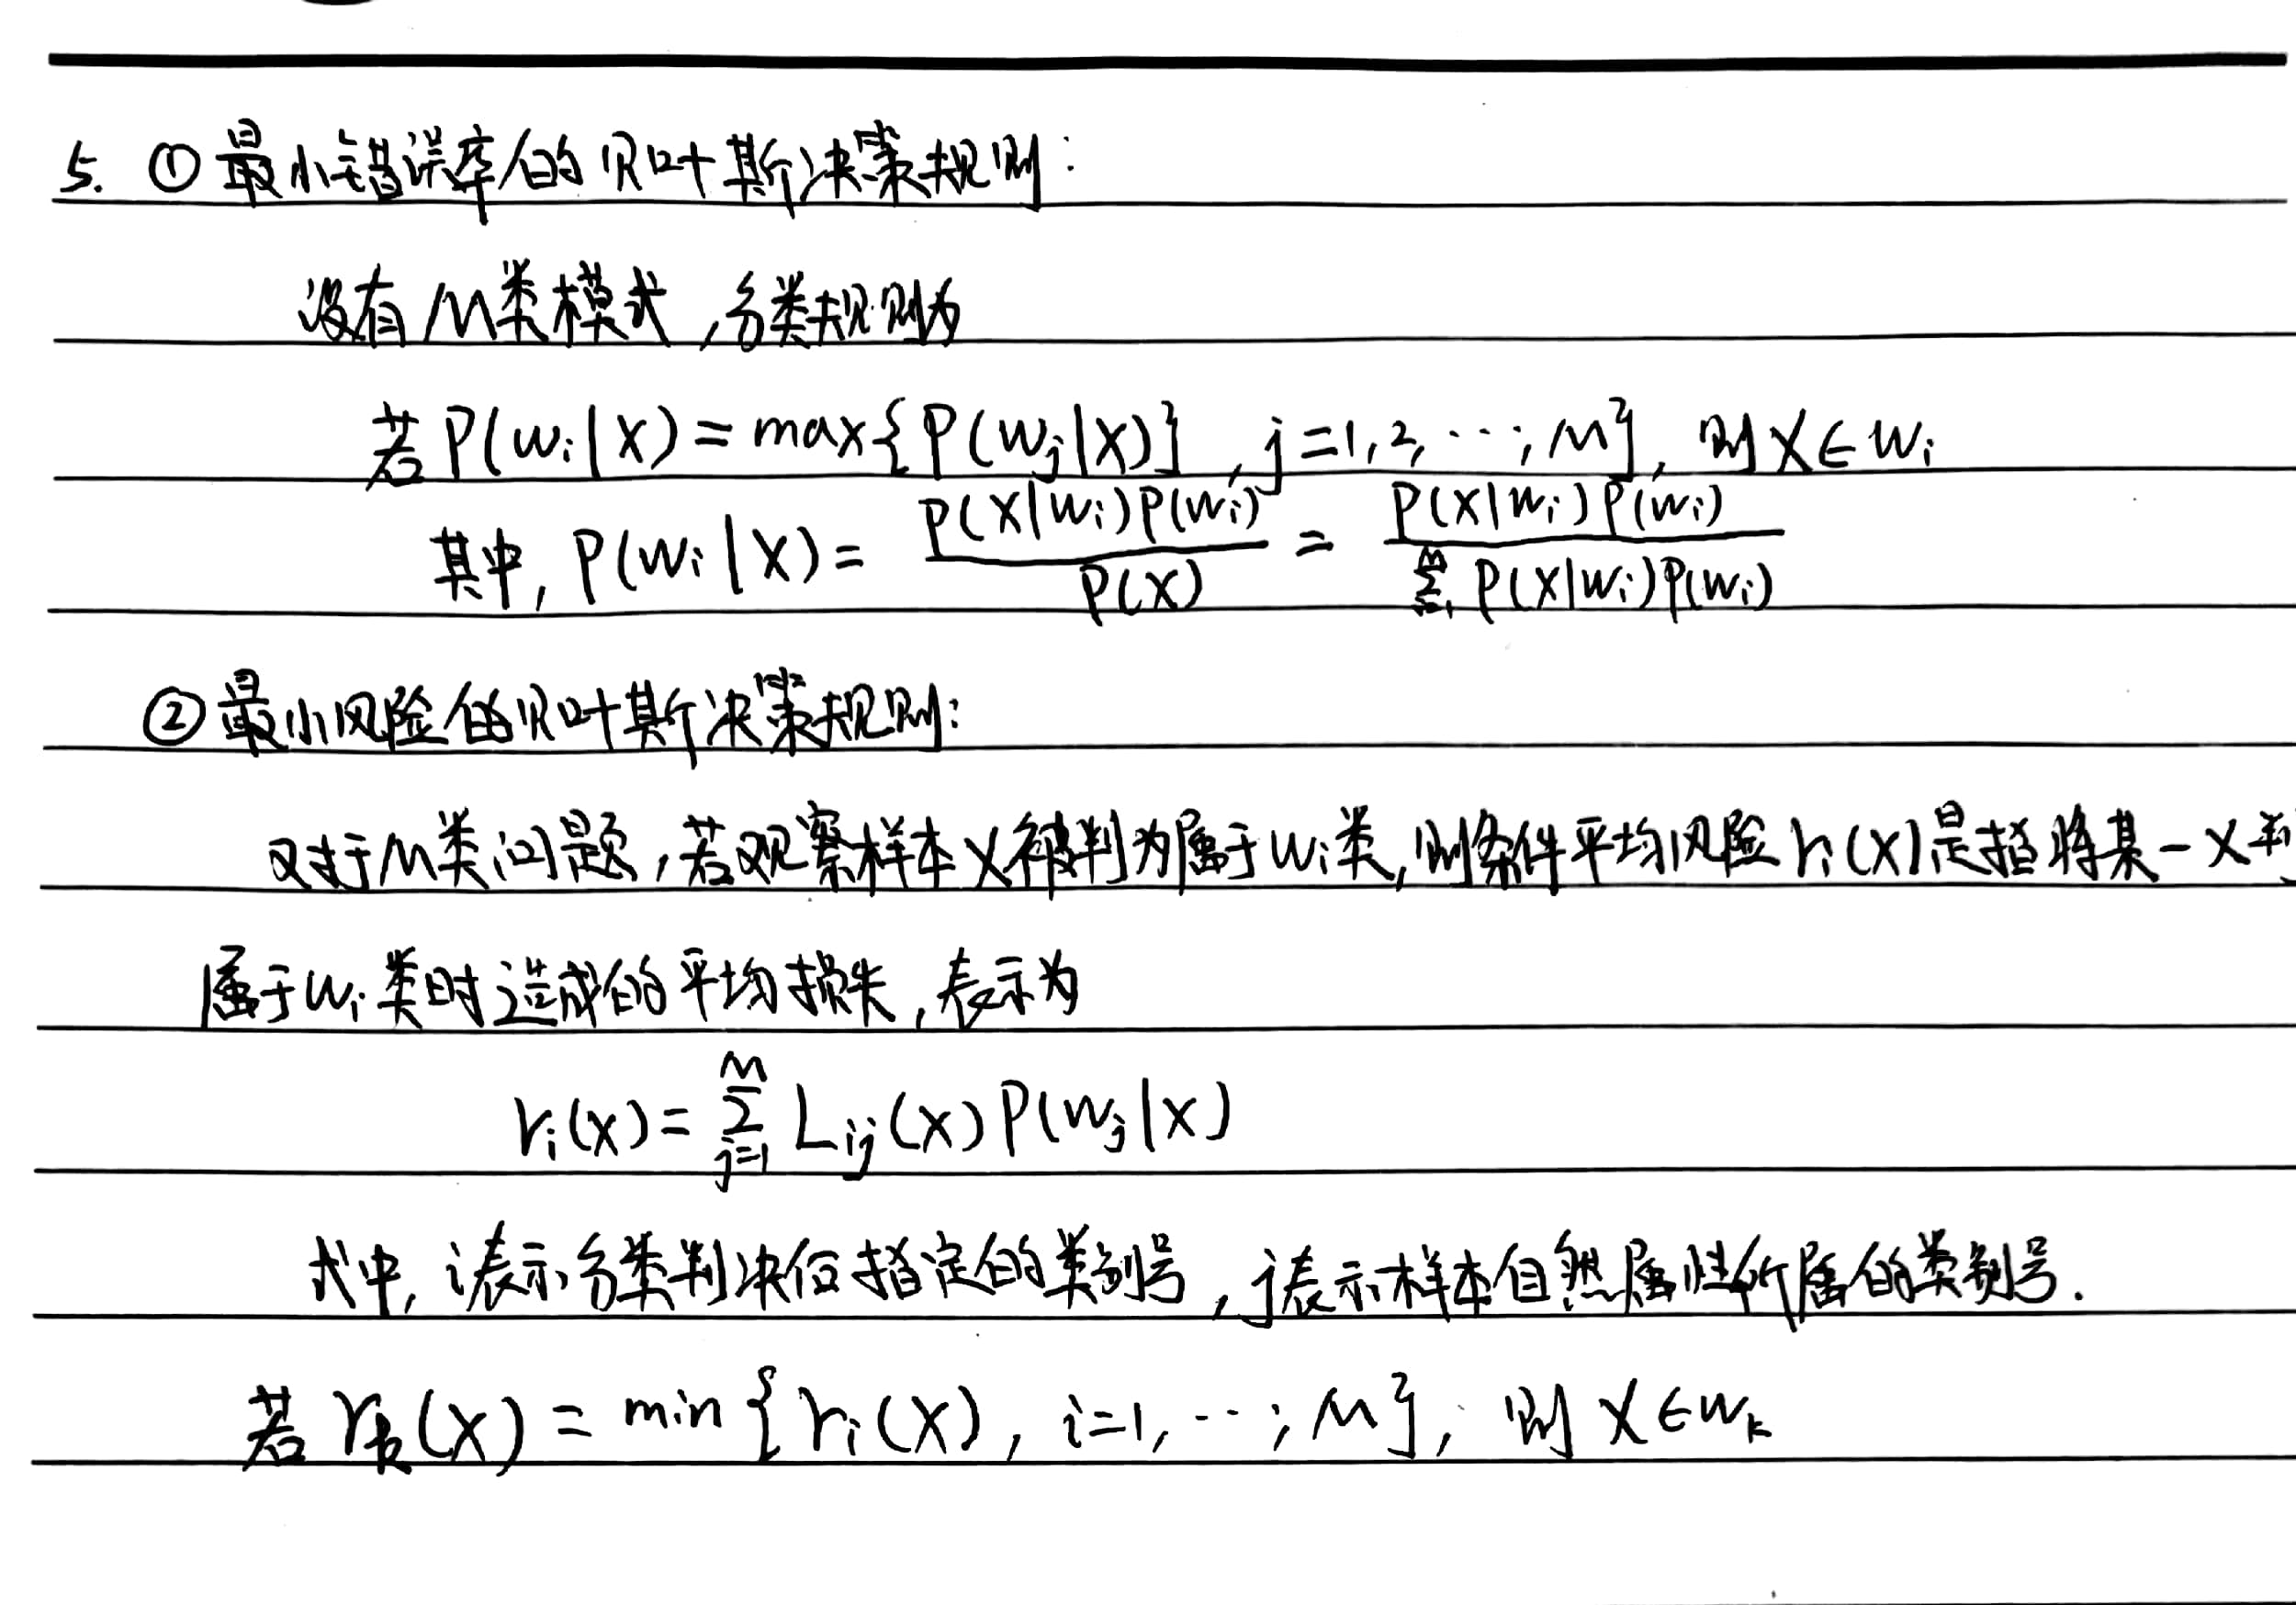 5. ①最小错误率的贝叶斯决策规则:
设有M类模式,分类规则为
若P(wi|X)=max{P(wj|X)], j=1,2,…,M}, 则X∈wi
其中, P(wi|X)= P(X|wi)P(wi)/P(X) = P(X|wi)P(wi)/∑_{i=1}^{M} P(X|wi)P(wi)
②最小风险的贝叶斯决策规则:
对于M类问题,若观察样本X被判为属于wi类,则条件平均风险ri(X)是指将某一X判
属于wi类时造成的平均损失,表示为
ri(X)=∑_{j=1}^{M} Lij(X)P(wj|X)
式中, i表示分类判决后指定的类别号, j表示样本自然属性所属的类别号.
若rk(X)=min{ri(X), i=1,…,M}, 则X∈wk